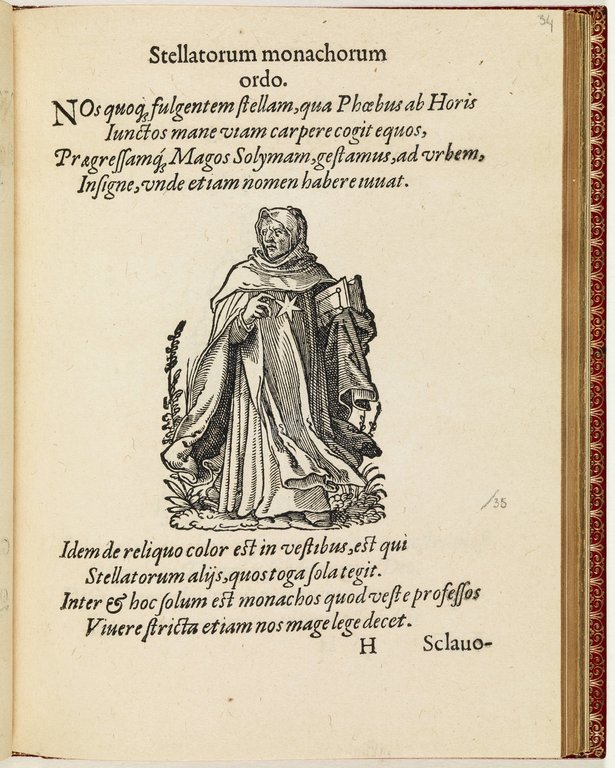 34
Stellatorum monachorum
ordo.
NOs quoq́; fulgentem ſtellam, qua Phœbus ab Horis
Iunctos mane viam carpere cogit equos,
Prægreſſamq́; Magos Solymam, geſtamus, ad vrbem,
Inſigne, vnde etiam nomen habere iuuat.
/35
Idem de reliquo color est in veſtibus, est qui
Stellatorum alijs, quos toga ſola tegit.
Inter & hoc ſolum est monachos quod veſte profeſſos
Viuere ſtricta etiam nos mage lege decet.
H Sclauo-